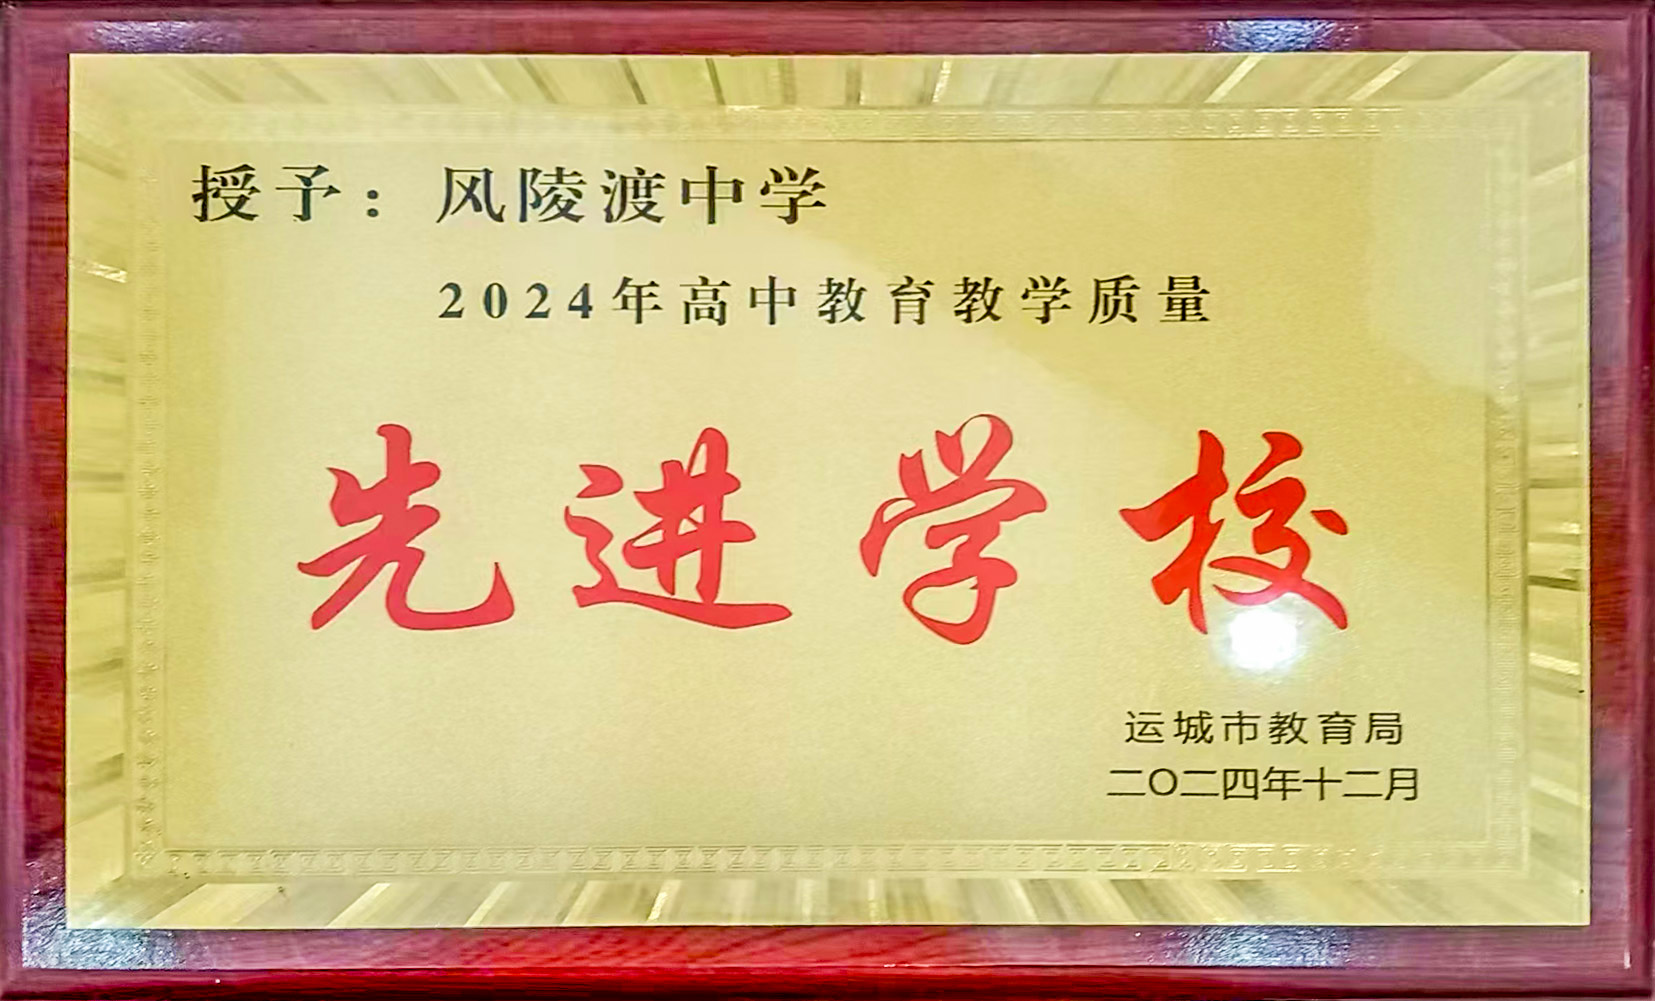 授予：风陵渡中学
2024年高中教育教学质量
先进学校
运城市教育局
二〇二四年十二月